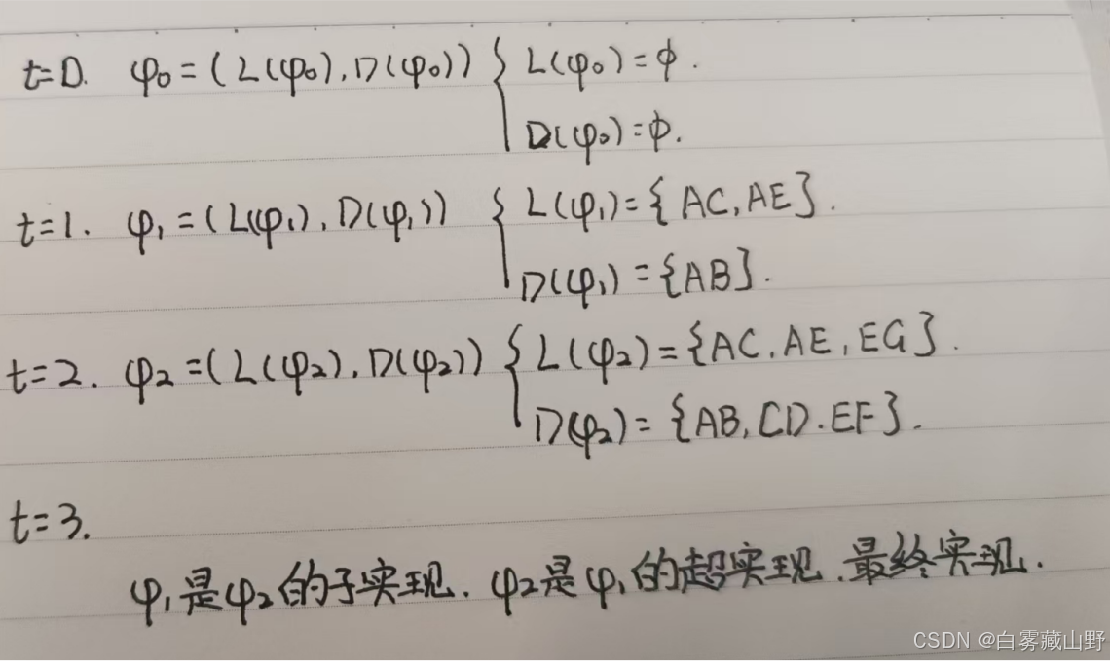 t=0. φ₀=(L(φ₀),D(φ₀)) { L(φ₀)=ϕ.
D(φ₀)=ϕ.
t=1. φ₁=(L(φ₁),D(φ₁)) { L(φ₁)={AC,AE}.
D(φ₁)={AB}.
t=2. φ₂=(L(φ₂),D(φ₂)) { L(φ₂)={AC,AE,EG}.
D(φ₂)={AB,CD.EF}.
t=3.
φ₁是φ₂的子实现. φ₂是φ₁的超实现.最终实现.
CSDN @白雾藏山野